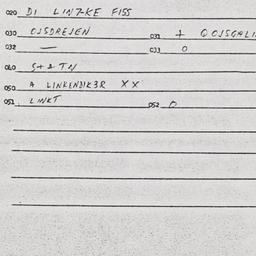 020 DI LIN7-KE FISS
030 OJSDREJEN 031 + QOJSGALI
032 — 033 0
040 S+ & TN
050 A LINKENDIK3R XX
051 LINKT 052 0